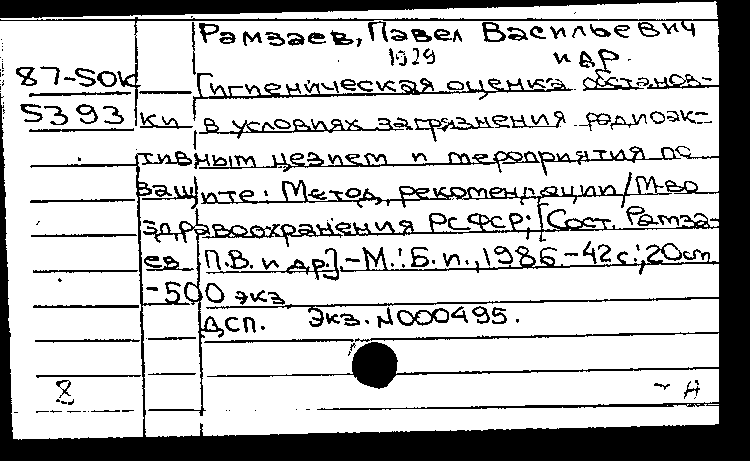 Рамзаев, Павел Васильевич
1929 и др.
87-SOK Гигиеническая оценка обстанов-
5393 ки в условиях загрязнения радиоак-
тивным цезием и мероприятия по
защите: Метод. рекомендации/М-во
здравоохранения РСФСР; [Сост. Рамза-
ев П.В. и др.].-М.: Б.и., 1986-42с.; 20см.
-500 экз.
ДСП. Экз. N000495.
8 ~ А